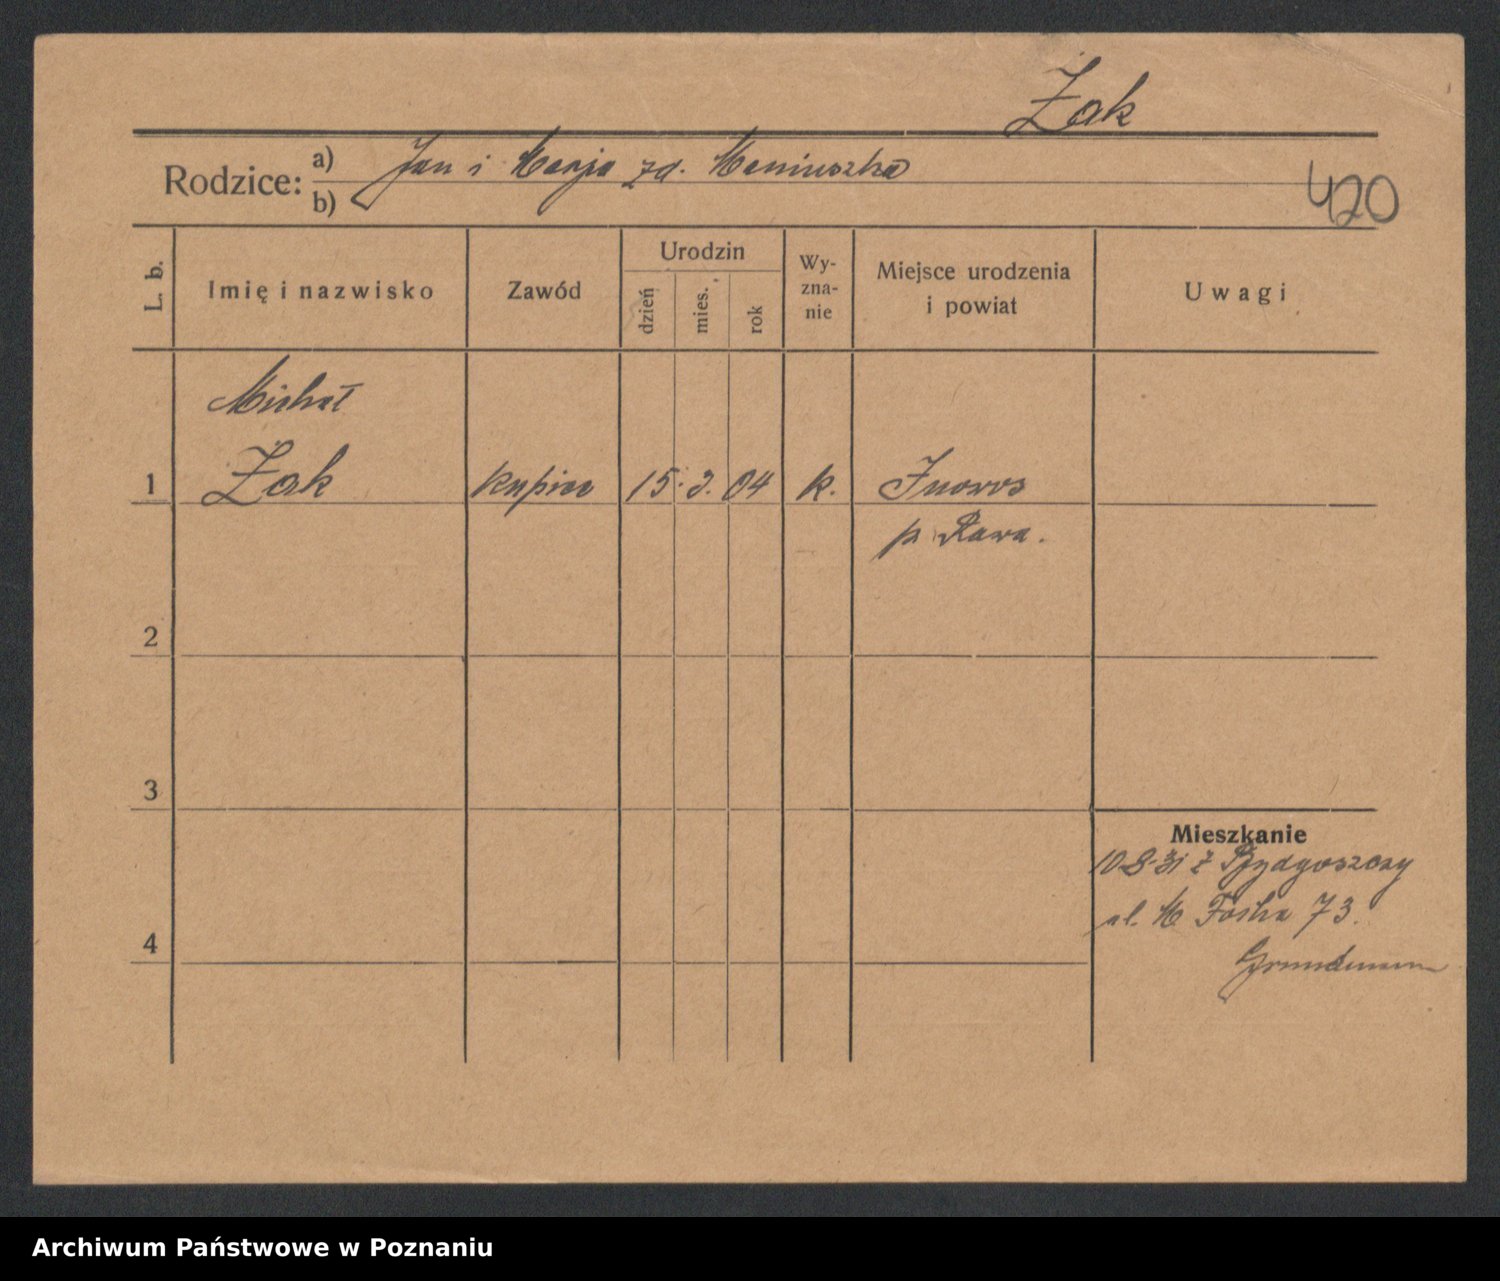 Żak
Rodzice:
a) Jan i Marja zd. Maniuszka
b)
420
L. b.
Imię i nazwisko
Zawód
Urodzin
dzień
mies.
rok
Wy-
zna-
nie
Miejsce urodzenia
i powiat
Uwagi
Michał
1 Żak kupiec 15. 3. 04 k. Inowos
p. Rawa.
2
3
Mieszkanie
10-8-31 z Bydgoszczy
ul. M Focha 73.
4
Archiwum Państwowe w Poznaniu